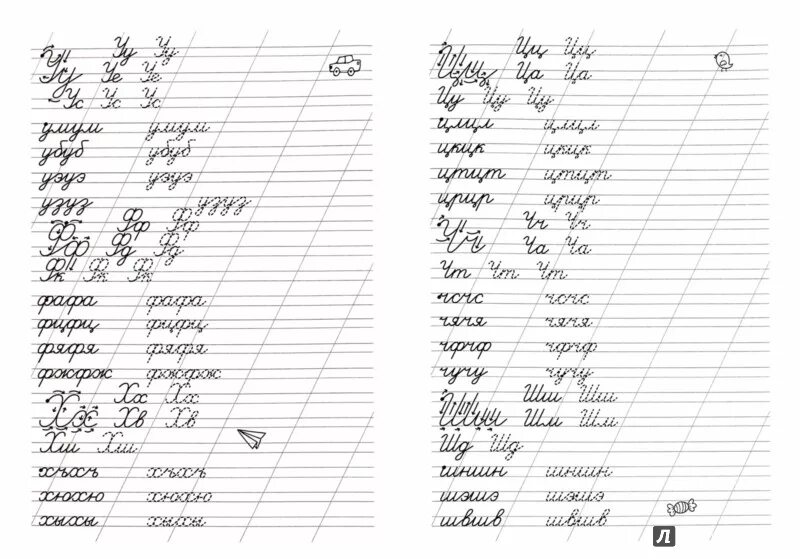 Уу Уу
Уу Уе Уе
Ус Ус Ус
умум умум
убуб убуб
уэуэ уэуэ
узуз узуз
Фф Фф
Фф Фд Фд
Фк Фк Фк
фафа фафа
фцфц фцфц
фяфя фяфя
фжфж фжфж
Хх Хх
Хх Хв Хв
Хш Хш
хъхъ хъхъ
хюхю хюхю
хыхы хыхы
Цц Цц
Цц Ца Ца
Цу Цу Цу
цлцл цлцл
цкцк цкцк
цтцт цтцт
црцр црцр
Чч Чч
Чч Ча Ча
Чт Чт Чт
чсчс чсчс
чячя чячя
чфчф чфчф
чучу чучу
Шш Шш
Шш Шм Шм
Шд Шд
шншн шншн
шэшэ шэшэ
швшв швшв
Л